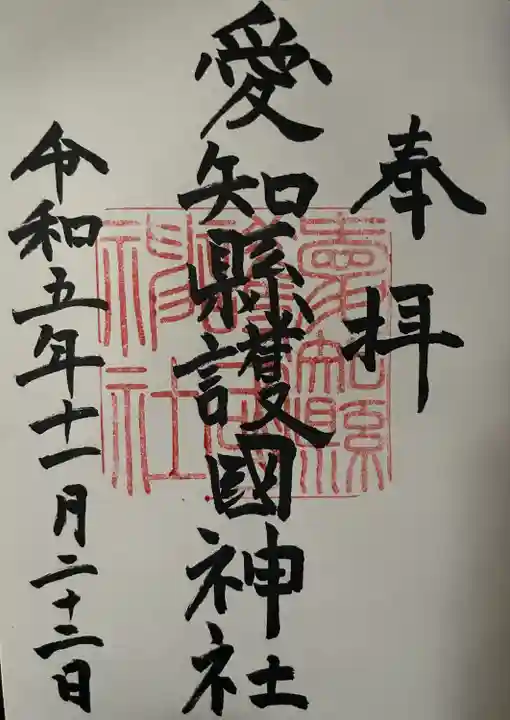 奉拝
愛知縣護國神社
愛知縣
護國
神社
令和五年十一月二十三日